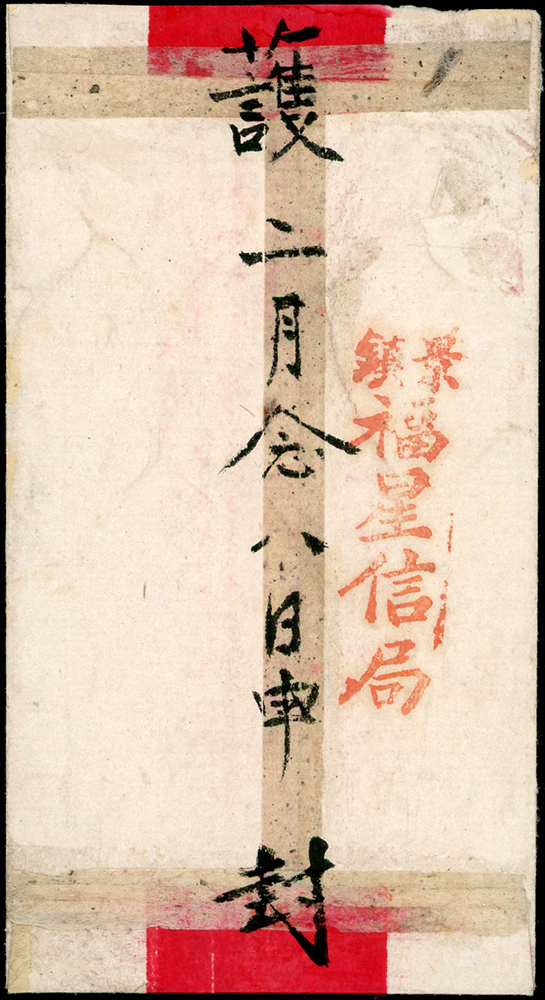 景鎮
福星信局
䕶二月念八日申封